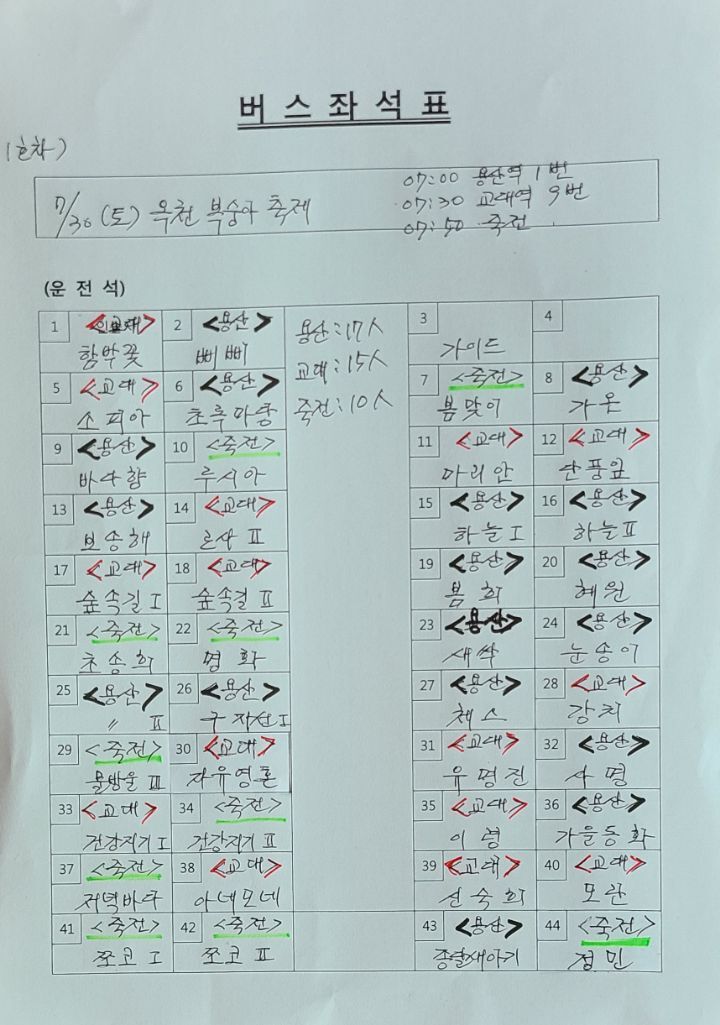 버 스 좌 석 표
7/30 (토) 옥천 복숭아 축제
07:00 용산역 1번
07:30 교대역 9번
07:50 죽전
(운 전 석)
용산 : 17人
교대 : 15人
죽전 : 10人
1 <교대> 2 <용산> 3 4
함박꽃 삐삐 가이드
5 <교대> 6 <용산> 7 <죽전> 8 <용산>
소피아 초루마당 봄맞이 가온
9 <용산> 10 <죽전> 11 <교대> 12 <교대>
바다향 루시아 마리안 단풍잎
13 <용산> 14 <교대> 15 <용산> 16 <용산>
보송해 로사 II 하늘 I 하늘 II
17 <교대> 18 <교대> 19 <용산> 20 <용산>
숲속길 I 숲속길 II 봄희 혜원
21 <죽전> 22 <죽전> 23 <용산> 24 <용산>
초송희 명화 새싹 눈송이
25 <용산> 26 <용산> 27 <용산> 28 <교대>
〃 II 구자선 I 체스 강치
29 <죽전> 30 <교대> 31 <교대> 32 <용산>
물방울 III 자유영혼 유명진 사명
33 <교대> 34 <죽전> 35 <교대> 36 <용산>
건강지기 I 건강지기 II 이령 가을동화
37 <죽전> 38 <교대> 39 <교대> 40 <교대>
저녁바다 아네모네 선숙희 모란
41 <죽전> 42 <죽전> 43 <용산> 44 <죽전>
쪼코 I 쪼코 II 종달새아기 정민